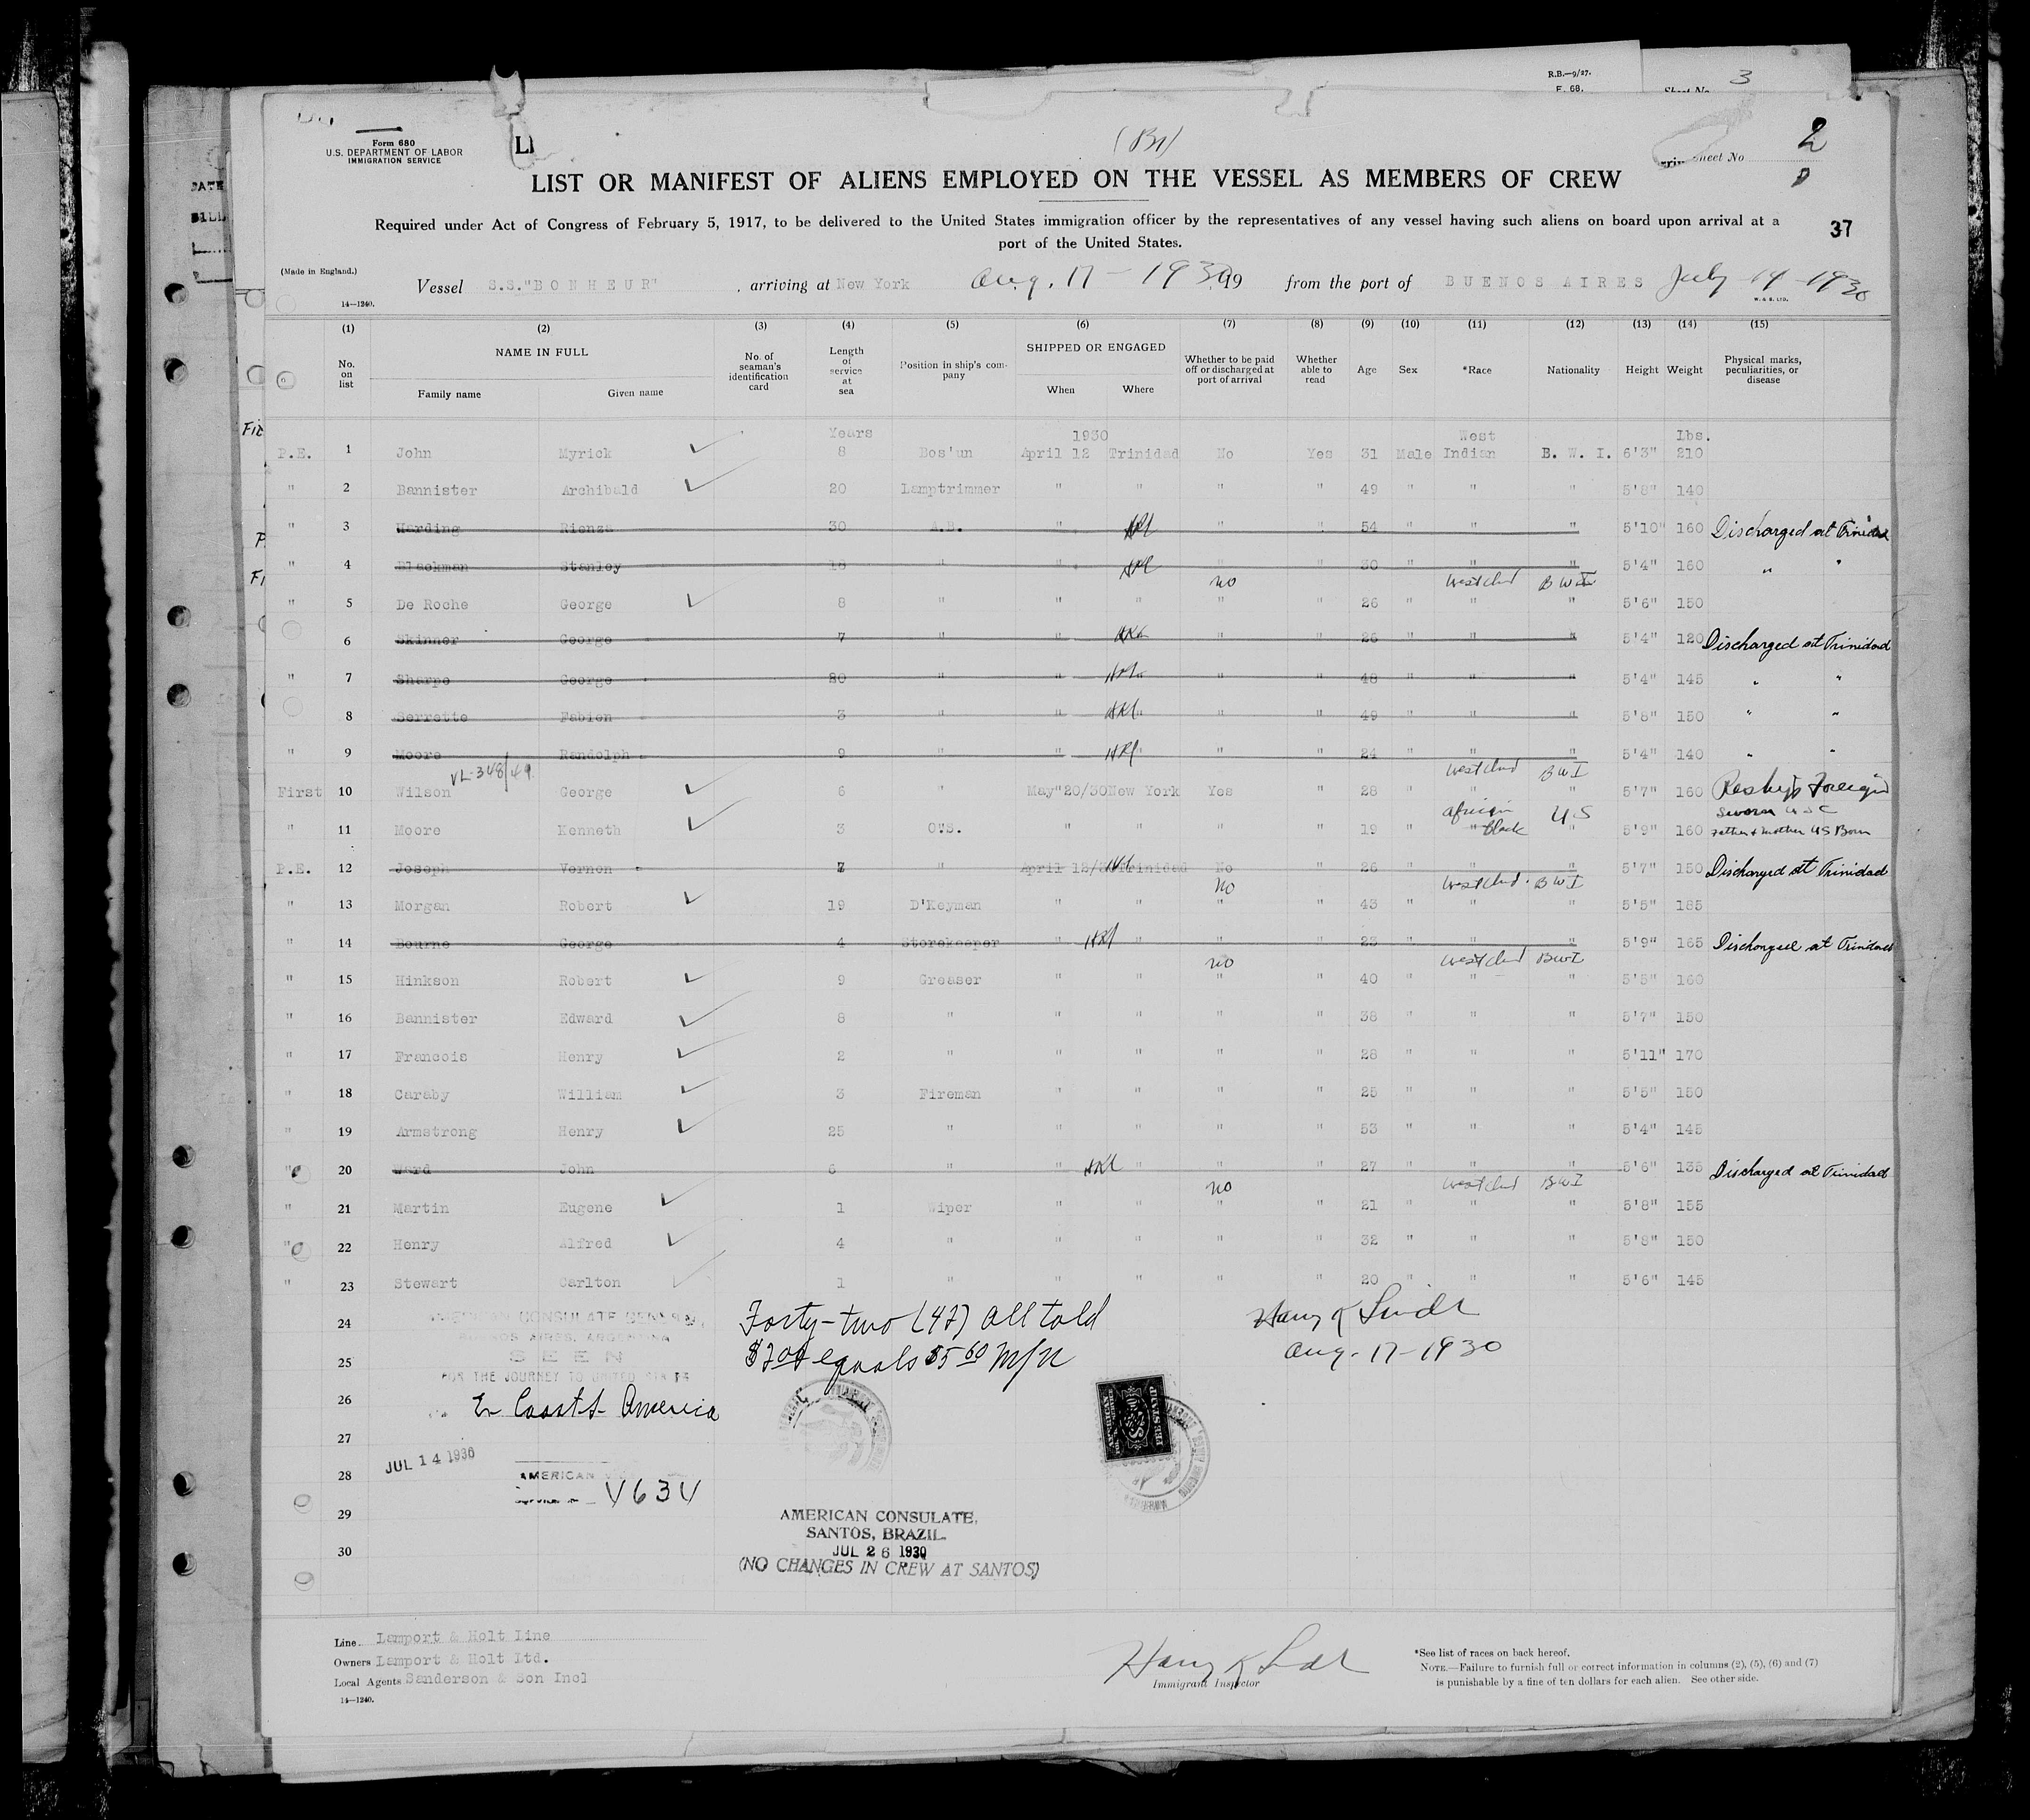 R.B.—9/27.
F. 68.
3
Form 680
U.S. DEPARTMENT OF LABOR
IMMIGRATION SERVICE
(Br)
Sheet No
2
LIST OR MANIFEST OF ALIENS EMPLOYED ON THE VESSEL AS MEMBERS OF CREW
Required under Act of Congress of February 5, 1917, to be delivered to the United States immigration officer by the representatives of any vessel having such aliens on board upon arrival at a
port of the United States.
37
(Made in England.)
Vessel S.S."BONHEUR", arriving at New York Aug. 17 - 1930, 19 from the port of BUENOS AIRES July 14 - 1930
14—1240.
W. & S. LTD.
(1) (2) (3) (4) (5) (6) (7) (8) (9) (10) (11) (12) (13) (14) (15)
No. on list NAME IN FULL Family name Given name No. of seaman's identification card Length of service at sea Position in ship's company SHIPPED OR ENGAGED When Where Whether to be paid off or discharged at port of arrival Whether able to read Age Sex *Race Nationality Height Weight Physical marks, peculiarities, or disease
Years 1930 West Lbs.
P.E. 1 John Myrick 8 Bos'un April 12 Trinidad No Yes 31 Male Indian B. W. I. 6'3" 210
" 2 Bannister Archibald 20 Lamptrimmer " " " " 49 " " " 5'8" 140
" 3 Harding Rienza 30 A.B. " " " 54 " " " 5'10" 160 Discharged at Trinidad
" 4 Blackman Stanley 18 " " " " 30 " " " 5'4" 160 " "
no West Ind B W I
" 5 De Roche George 8 " " " " " 26 " " " 5'6" 150
6 Skinner George 7 " " " " 26 " " " 5'4" 120 Discharged at Trinidad
" 7 Sharpe George 20 " " " " 48 " " " 5'4" 145 " "
8 Serrette Fabien 3 " " " " " 49 " " " 5'8" 150 " "
" 9 Moore Randolph 9 " " " " " 24 " " " 5'4" 140 " "
VL-348/49 West Ind B W I
First 10 Wilson George 6 " May 20/30 New York Yes " 28 " " " 5'7" 160 Reships Foreign
African U S Sworn U S C
" 11 Moore Kenneth 3 O.S. " " " " 19 " " black " 5'9" 160 Father & Mother U S Born
P.E. 12 Joseph Vernon 7 " April 12/30 Trinidad No " 26 " " " 5'7" 150 Discharged at Trinidad
no West Ind. B W I
" 13 Morgan Robert 19 D'Keyman " " " " 43 " " " 5'5" 185
" 14 Bourne George 4 Storekeeper " " " " 23 " " " 5'9" 165 Discharged at Trinidad
no West Ind B W I
" 15 Hinkson Robert 9 Greaser " " " " 40 " " " 5'5" 160
" 16 Bannister Edward 8 " " " " " 38 " " " 5'7" 150
" 17 Francois Henry 2 " " " " " 28 " " " 5'11" 170
" 18 Caraby William 3 Fireman " " " " 25 " " " 5'5" 150
" 19 Armstrong Henry 25 " " " " " 53 " " " 5'4" 145
" 20 Ward John 6 " " " " " 27 " " " 5'6" 135 Discharged at Trinidad
no West Ind B W I
" 21 Martin Eugene 1 Wiper " " " " 21 " " " 5'8" 155
" 22 Henry Alfred 4 " " " " " 32 " " " 5'8" 150
" 23 Stewart Carlton 1 " " " " " 20 " " " 5'6" 145
24
25
26
27
28
29
30
AMERICAN CONSULATE GENERAL
BUENOS AIRES, ARGENTINA
SEEN
FOR THE JOURNEY TO UNITED STATES
E Coast S America
JUL 14 1930
AMERICAN
4634
Forty-two (42) all told
$2.00 equals $5.60 m/n
Harry K Lindt
Aug. 17-1930
AMERICAN
FEE STAMP
AMERICAN CONSULATE,
SANTOS, BRAZIL.
JUL 26 1930
(NO CHANGES IN CREW AT SANTOS)
Line Lamport & Holt Line
Owners Lamport & Holt Ltd.
Local Agents Sanderson & Son Inc]
14—1240.
Immigrant Inspector
*See list of races on back hereof.
NOTE.—Failure to furnish full or correct information in columns (2), (5), (6) and (7)
is punishable by a fine of ten dollars for each alien. See other side.